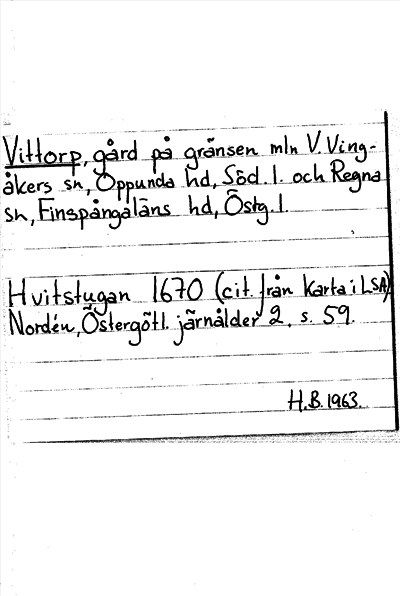 Vittorp, gård på gränsen mln V. Ving-
åkers sn, Oppunda hd, Söd. l. och Regna
sn, Finspångaläns hd, Östg. l.
Hvitstugan 1670 (cit. från karta i LSA)
Nordén, Östergötl. järnålder 2, s. 59.
H.B. 1963.